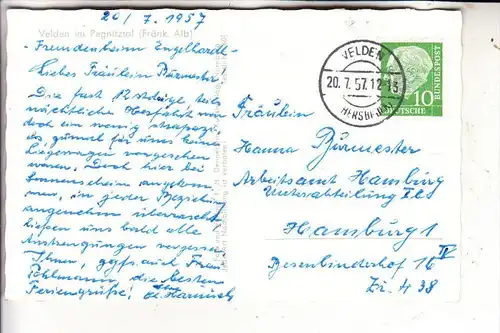 20/7.1957
Velden im Pegnitztal (Fränk. Alb)
- Fremdenheim Engelhardt -
Liebes Fräulein Burmester
Die fast 12stündige, teils
nächtliche Herfahrt war
doch ein wenig strapaziös,
als für uns keine
Liegewagen vorgesehen
waren. Doch hier bei
Sonnenschein angekom-
men, in jeder Beziehung
angenehm überrascht
ließen uns bald alle
Anstrengungen vergessen.
Ihnen, ggfs. auch Frau
Pohlmann die besten
Feriengrüße! Ihre
VELDEN
20.7.57.12-13
HERSBRUCK
DEUTSCHE BUNDESPOST
10
Fräulein
Hanna Burmester
Arbeitsamt Hamburg
Unterabteilung
Hamburg 1
Besenbinderhof 16 IV
Zi. 438